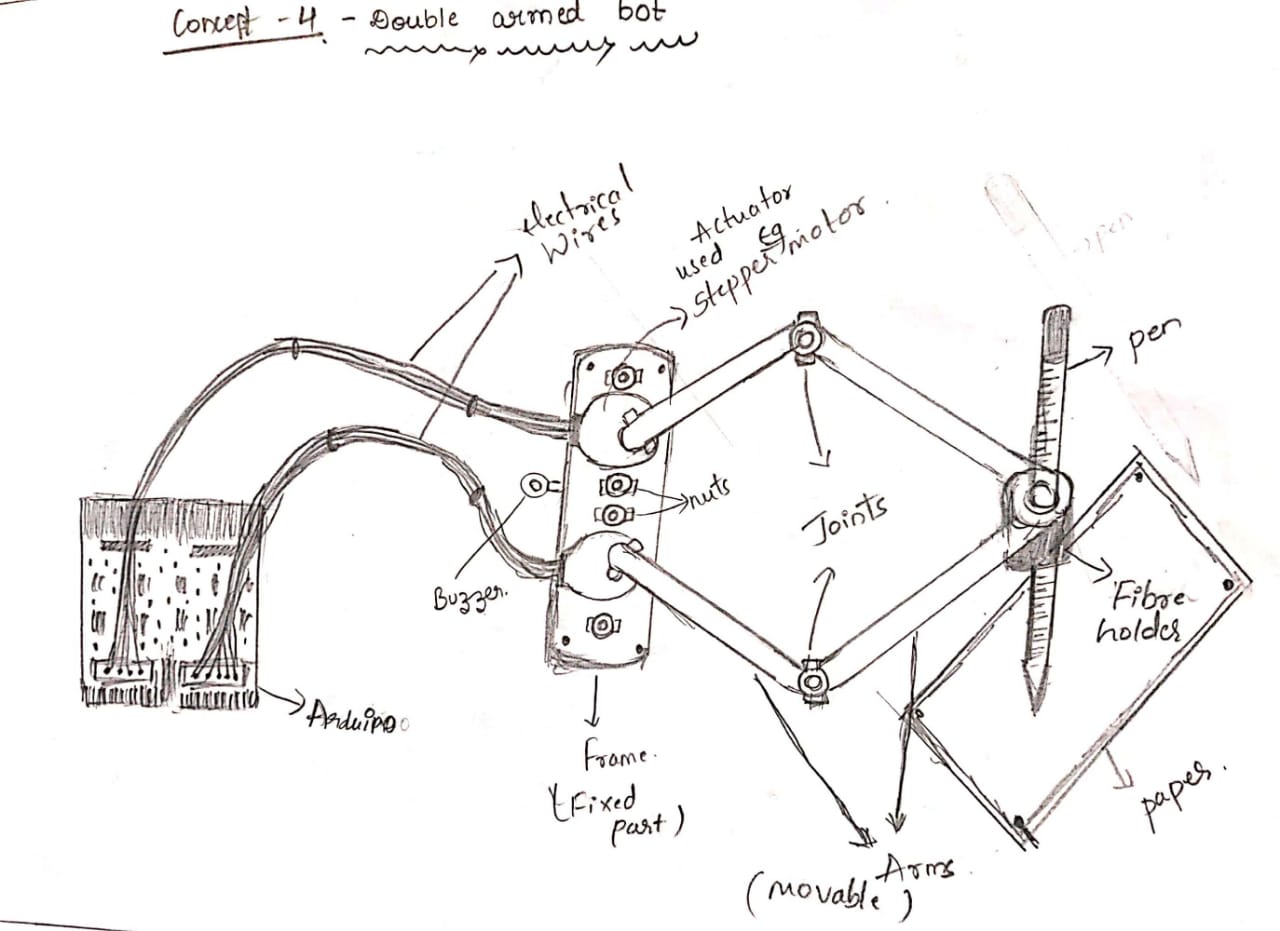 Concept - 4 - Double armed bot
Electrical
Wires
Actuator
used Eg
stepper motor.
pen
pen
nuts
Joints
Buzzer.
Fibre
holder
Arduino
Frame.
(Fixed
part)
paper.
Arms.
(movable)